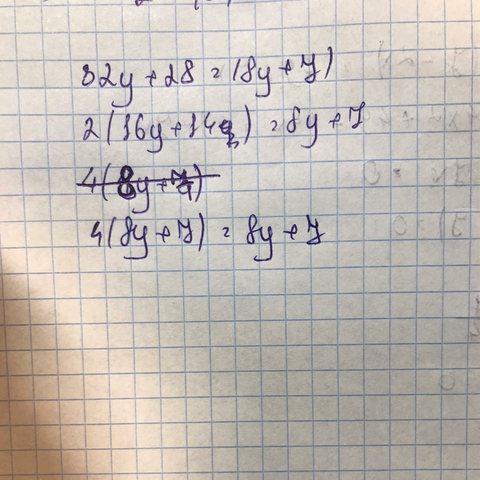 32y + 28 = (8y + 7)
2(16y + 14) = 8y + 7
4(8y + 7)
4(8y + 7) = 8y + 7